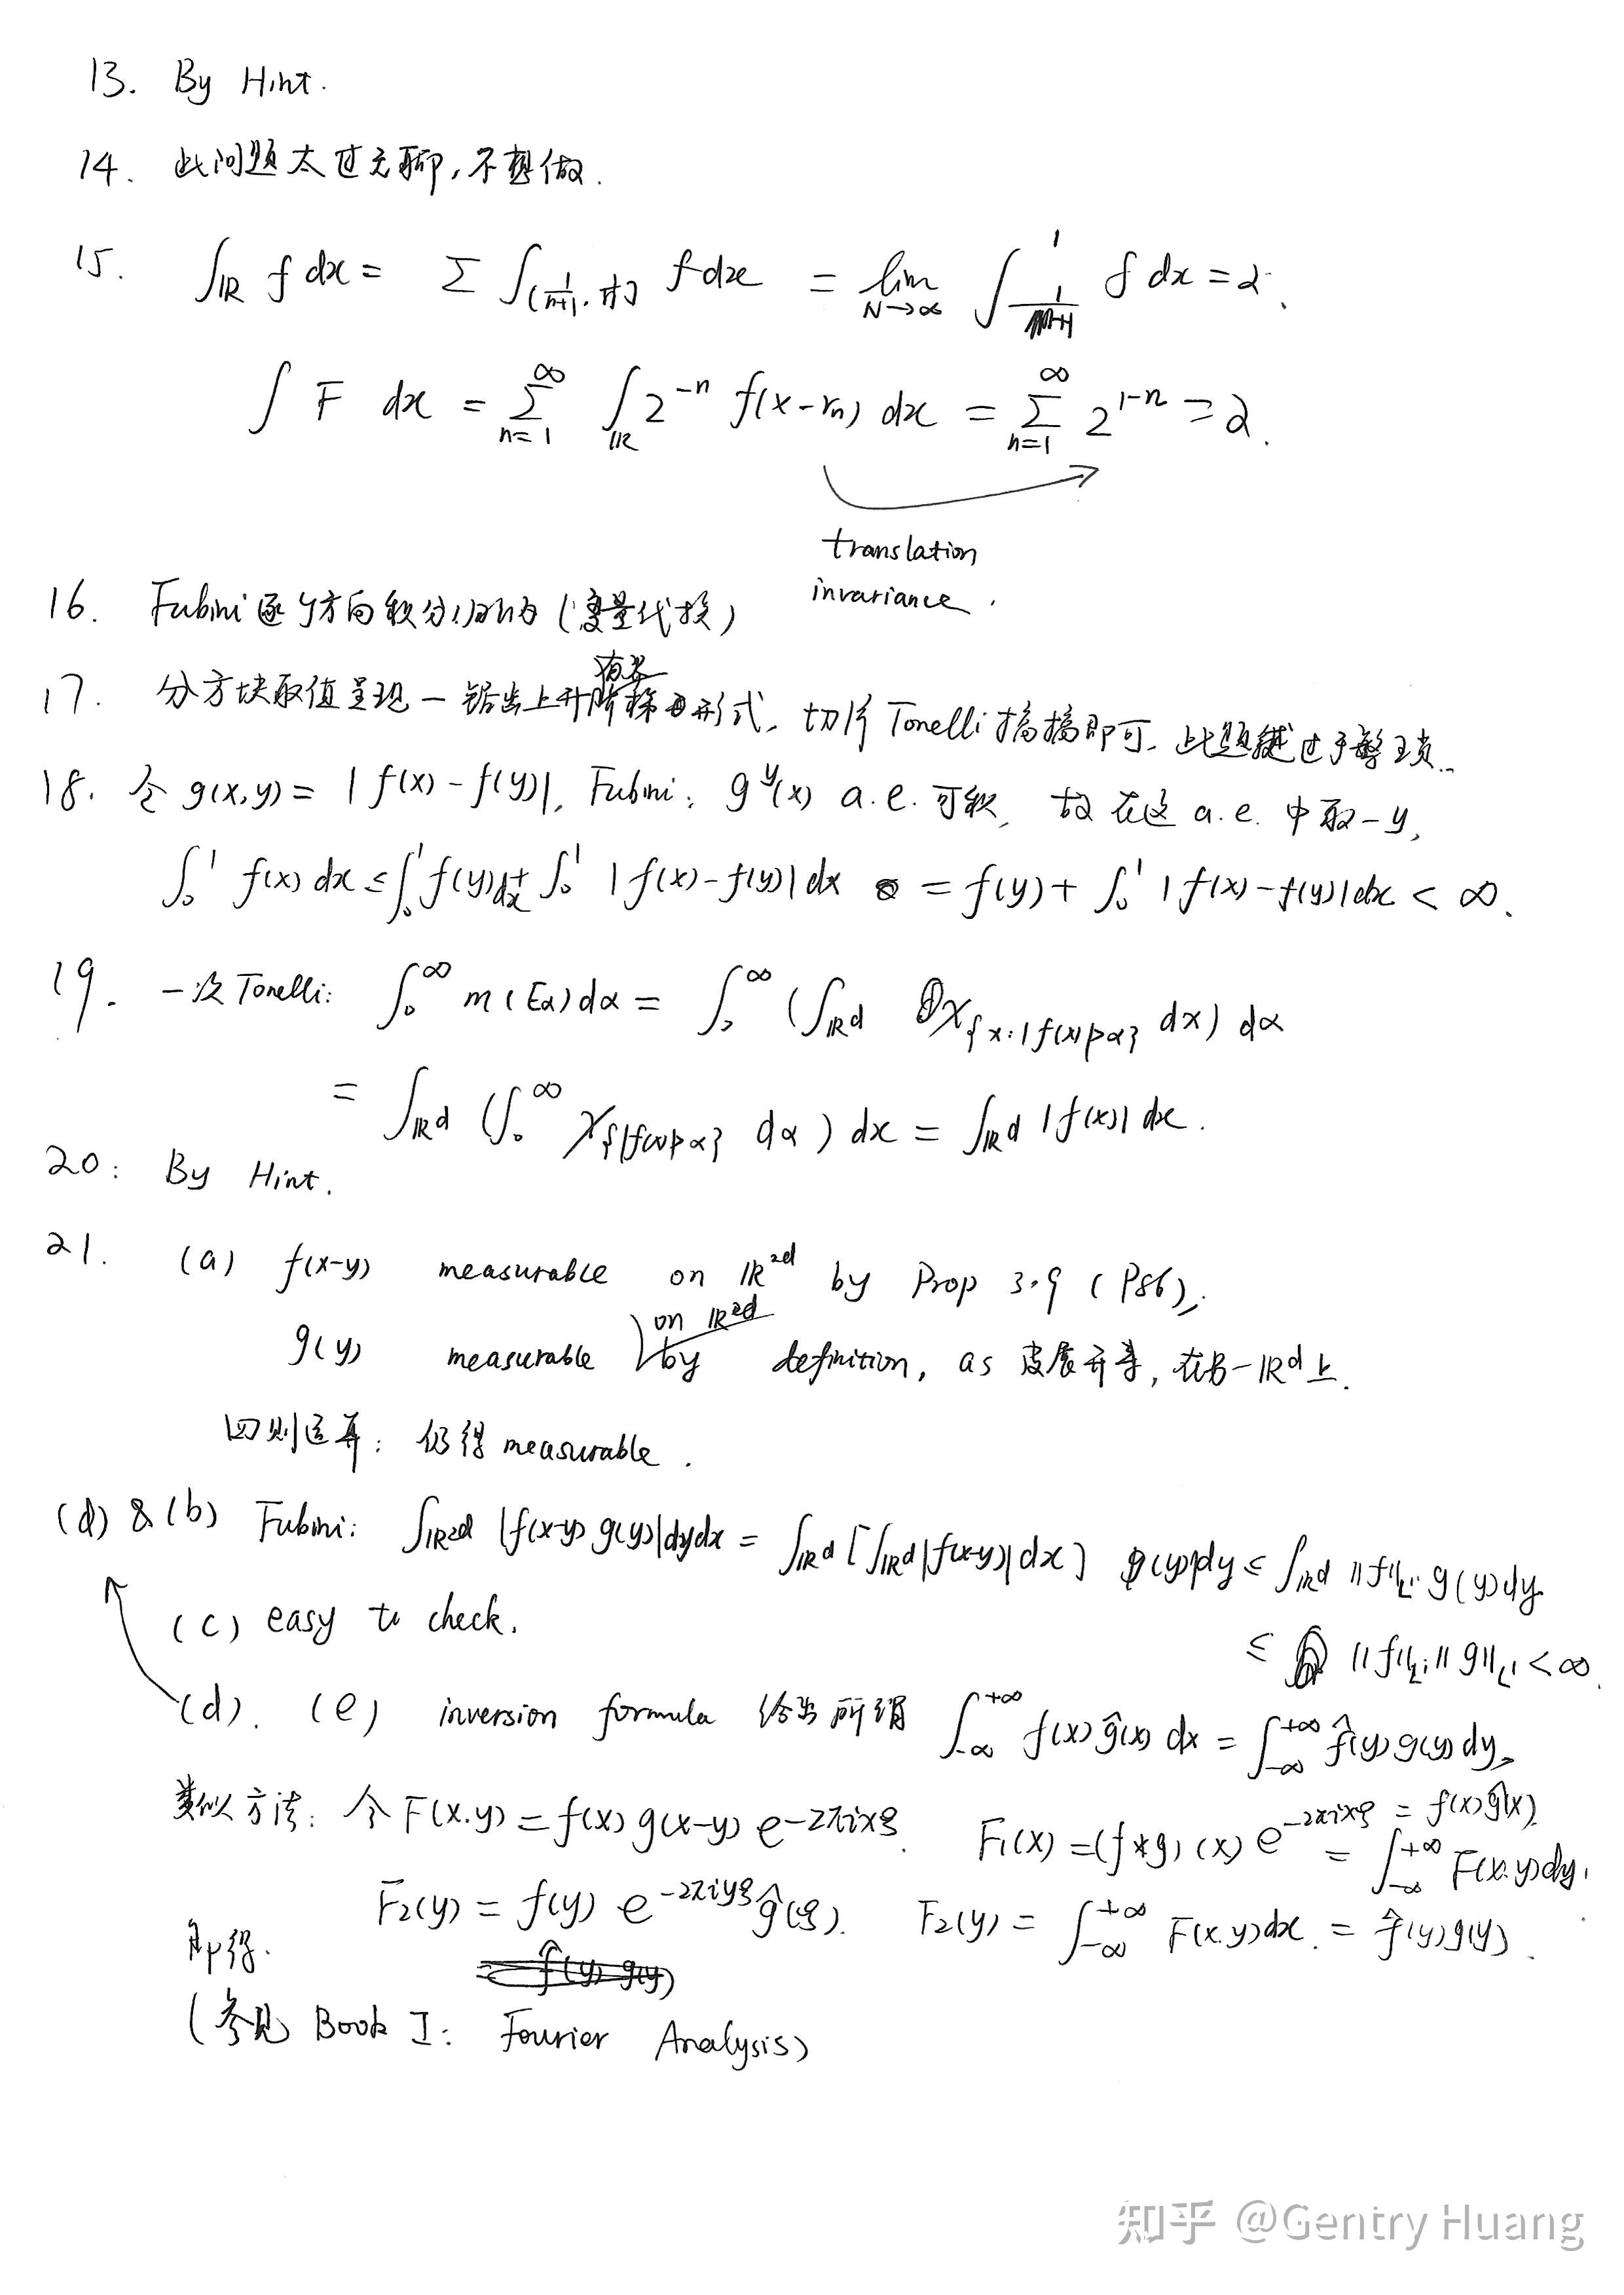 13. By Hint.
14. 此问题太过无聊,不想做.
15. ∫_ℝ f dx = Σ ∫_(1/(n+1), 1/n] f dx = lim_{N→∞} ∫_{1/(N+1)}^1 f dx = 2.
∫ F dx = Σ_{n=1}^∞ ∫_ℝ 2^{-n} f(x-r_n) dx = Σ_{n=1}^∞ 2^{1-n} = 2.
translation
invariance.
16. Fubini 逐y方向积分归纳 (变量代换)
17. 分方块取值呈现一锯齿上升有界阶梯形式, 切片Tonelli搞搞即可, 此题过于繁琐..
18. 令 g(x,y) = |f(x)-f(y)|, Fubini: g^y(x) a.e. 可积, 故在这 a.e. 中取一y,
∫_0^1 f(x) dx ≤ ∫_0^1 f(y) dx + ∫_0^1 |f(x)-f(y)| dx = f(y) + ∫_0^1 |f(x)-f(y)| dx < ∞.
19. 一次Tonelli: ∫_0^∞ m(E_α) dα = ∫_0^∞ (∫_{ℝ^d} χ_{{x:|f(x)|>α}} dx) dα
= ∫_{ℝ^d} (∫_0^∞ χ_{{|f(x)|>α}} dα) dx = ∫_{ℝ^d} |f(x)| dx.
20: By Hint.
21. (a) f(x-y) measurable on ℝ^{2d} by Prop 3.9 (P86),
on ℝ^{2d}
g(y) measurable by definition, as 开, 在另一ℝ^d上.
四则运算: 仍得 measurable.
(d) & (b) Fubini: ∫_{ℝ^{2d}} |f(x-y) g(y)| dy dx = ∫_{ℝ^d} [∫_{ℝ^d} |f(x-y)| dx] |g(y)| dy ≤ ∫_{ℝ^d} ||f||_{L^1} g(y) dy
(c) easy to check.
≤ ||f||_{L^1} ||g||_{L^1} < ∞.
(d). (e) inversion formula 给出所谓 ∫_{-∞}^{+∞} f(x) ĝ(x) dx = ∫_{-∞}^{+∞} f̂(y) g(y) dy,
类似方法: 令 F(x.y) = f(x) g(x-y) e^{-2πixξ}. F_1(x) = (f*g)(x) e^{-2πixξ} = f(x) ĝ(x) = ∫_{-∞}^{+∞} F(x.y) dy,
F_2(y) = f(y) e^{-2πiyξ} ĝ(ξ). F_2(y) = ∫_{-∞}^{+∞} F(x.y) dx. = f̂(y) g(y).
即得.
(参见 Book I: Fourier Analysis)
知乎 @Gentry Huang